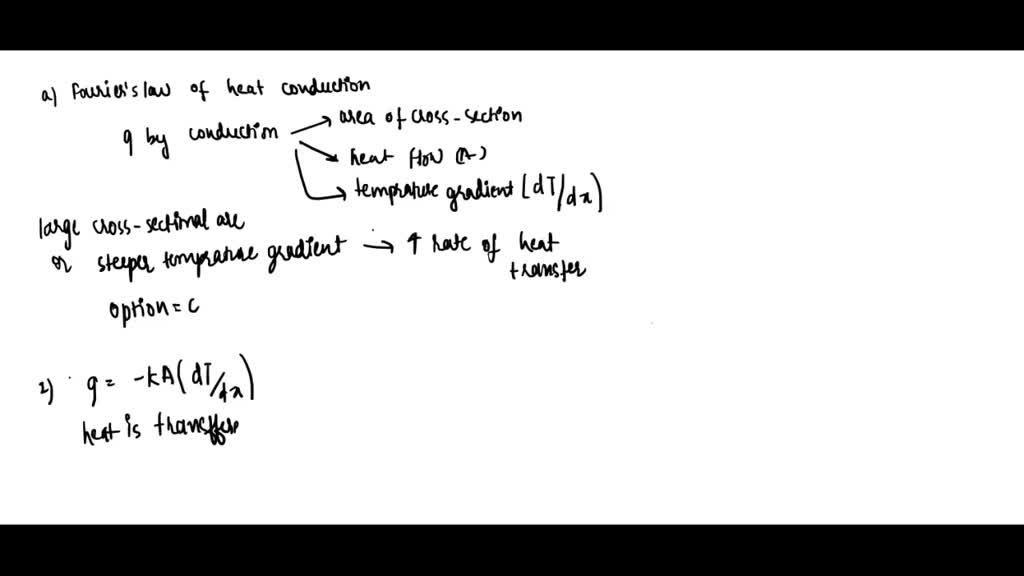 a) Fourier's law of heat conduction
q by conduction → area of cross-section
→ heat flow (A)
→ temprature gradient [dT/dx)
large cross-sectional are
or steeper temprature gradient → ↑ rate of heat
transfer
option = C
2) q = -kA(dT/dx)
heat is transfer